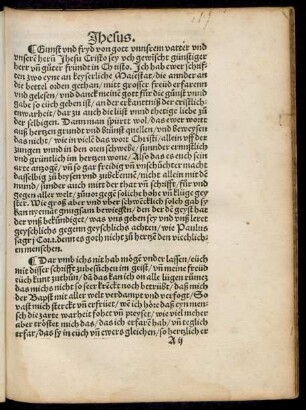 Jhesus.
¶ Gunst vnd fryd von gott vnnserm vatter vnd
vnsere hern Jhesu Cristo sey vch gewischt günstiger
herr vn güter fründt in Cristo. Jch hab ewer schrif-
ten zwo eyne an keyserliche Maiestat/ die annder an
die bettel orden gethan/ mitt grosser freüd erfaren
vnd gelesen/ vnd danck meine gott für die günst vnnd
gabe so eüch geben ist/ an der erkantniß der cristlich-
en warheit/ dar zu auch die lüst vnd thetige liebe zü
der selbigen. Dann man spürt wol/ das ewer wort
auß hertzen grundt vnd künst quellen/ vnd beweysen
das nicht/ wie in vielē das wort Christi/ allein vff der
zungen vnnd in den oren schwebe/ sunnder ernnstlich
vnd gründtlich im hertzen wone/ Also das es eüch sein
arte anzogē/ vn so gar freidig vn vnschüchter macht
dasselbig zü brysen vnd zübekennē/ nicht allein mit dē
mund/ sunder auch mitt der that vn schifft/ für vnd
gegen aller welt/ zünor gegē soliche hohe vn klüge gey
ster. Wie groß aber vnd vber schwēcklich solch gab sy
kan nyemāt gnugsam bewiegkē/ den der dē geyst hat
der vns bekündiget/ was vns geben sey vnd vnß leret
geyschlichs gegenn geyschlichs achten/ wie Paulus
sagt j Cor.ij. denn es gotty nicht zü hertzē den viechlich-
en menschen.
¶ Dar vmb ich s nit hab mögē vnder lassen/ eüch
mit disser schifft zubesüchen im geist/ vn meine freüd
eüch kunt zuthün/ dā das kan ich on alle lügen rümez
das michs nicht so seer kreckt noch betrübt/ daß mich
der Bapst mit aller welt verdampt vnd verfogt/ So
vast mich sterckt vn erfrüt/ wen ich hör/ daß eyn men-
sch die zarte warheit fohet vn preyset/ wie viel meher
aber tröstet mich das/ das ich erfarē hab/ vn teglich
erfar/ das sy in eüch vn ewers gleichen/ so herzlich er
A ij